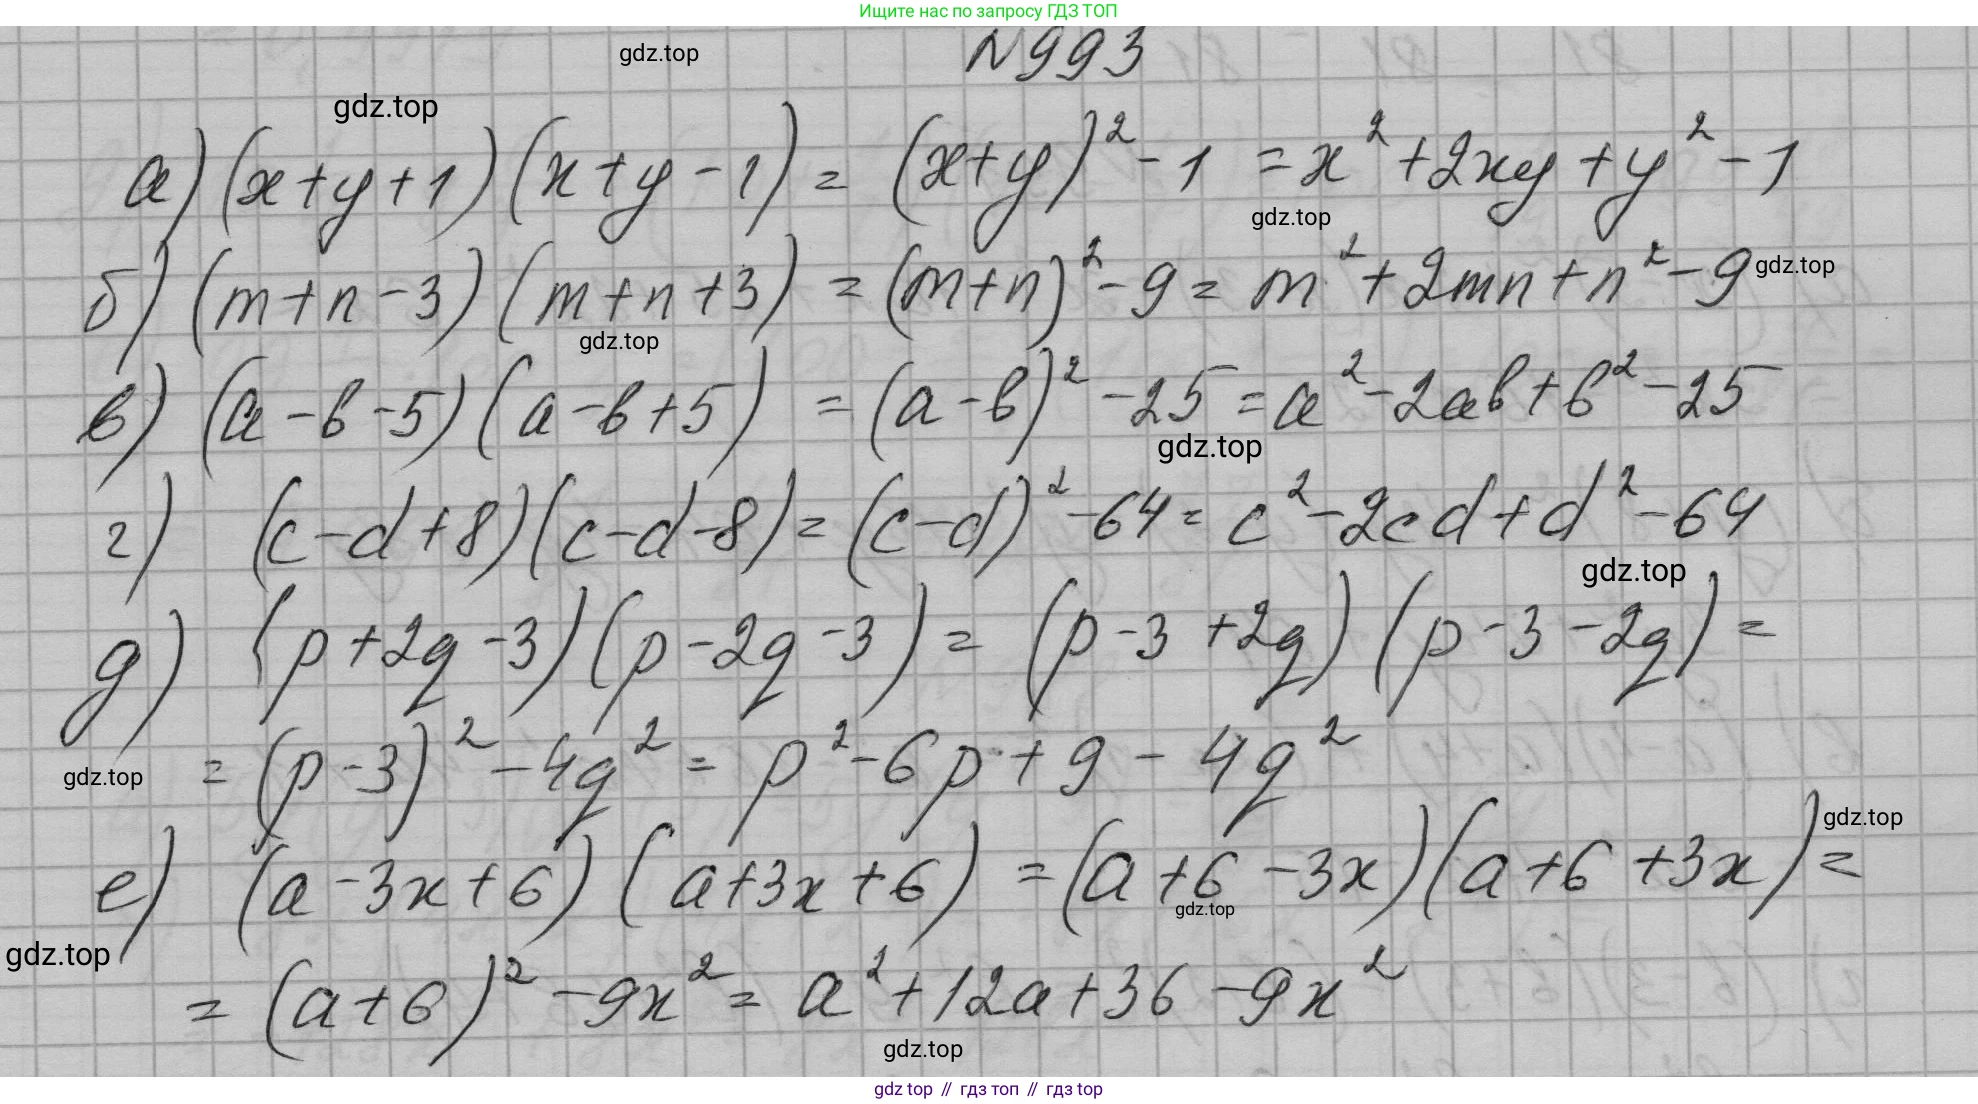 Ищите нас по запросу ГДЗ ТОП
N993
gdz.top
gdz.top
а) (x+y+1)(x+y-1) = (x+y)² - 1 = x² + 2xy + y² - 1
gdz.top
б) (m+n-3)(m+n+3) = (m+n)² - 9 = m² + 2mn + n² - 9
gdz.top
gdz.top
в) (a-b-5)(a-b+5) = (a-b)² - 25 = a² - 2ab + b² - 25
gdz.top
г) (c-d+8)(c-d-8) = (c-d)² - 64 = c² - 2cd + d² - 64
gdz.top
д) (p+2q-3)(p-2q-3) = (p-3+2q)(p-3-2q) =
gdz.top
= (p-3)² - 4q² = p² - 6p + 9 - 4q²
gdz.top
е) (a-3x+6)(a+3x+6) = (a+6-3x)(a+6+3x) =
gdz.top
gdz.top
= (a+6)² - 9x² = a² + 12a + 36 - 9x²
gdz.top
gdz top // гдз топ // гдз top